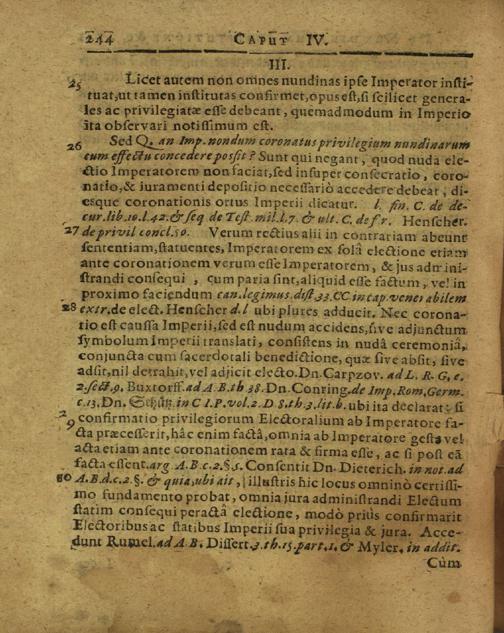 244 CAPUT IV.
III.
25 Licet autem non omnes nundinas ipse Imperator insti-
tuat, ut tamen institutas confirmet, opus est, si scilicet genera-
les ac privilegiatæ esse debeant, quemadmodum in Imperio
ita observari notissimum est.
26 Sed Q. an Imp. nondum coronatus privilegium nundinarum
cum effectu concedere possit? Sunt qui negant, quod nuda ele-
ctio Imperatorem non faciat, sed insuper consecratio, coro-
natio, & juramenti depositio necessariò accedere debeat, di-
esque coronationis ortus Imperii dicatur. l. fin. C. de de-
cur. lib. 10. l. 42. & seq de Test. mil. l. 7. & ult. C. de f r. Henscher.
27 de privil concl. 50. Verum rectius alii in contrariam abeunt
sententiam, statuentes, Imperatorem ex solâ electione etiam
ante coronationem verum esse Imperatorem, & jus admini-
strandi consequi, cum paria sint, aliquid esse factum, vel in
proximo faciendum can. legimus. dist. 33. CC in cap. venerabilem
28 extr. de elect. Henscher d. l ubi plures adducit. Nec corona-
tio est caussa Imperii, sed est nudum accidens, sive adjunctum
symbolum Imperii translati, consistens in nudâ ceremoniâ,
conjuncta cum sacerdotali benedictione, quæ sive absit, sive
adsit, nil detrahit, vel adjicit electo. Dn. Carpzov. ad L. R. G, c.
2. sect. 9. Buxtorff. ad A. B. th 38. Dn. Conring. de Imp. Rom. Germ.
c. 13. Dn. Schütz. in C I P. vol. 2. D 8. th. 3. lit. b. ubi ita declarat: si
29 confirmatio privilegiorum Electoralium ab Imperatore fa-
cta præcesserit, hâc enim factâ, omnia ab Imperatore gesta vel
acta etiam ante coronationem rata & firma esse, ac si post eâ
facta essent. arg A. B. c. 2. §. 5. Consentit Dn. Dieterich. in not. ad
30 A. B. d. c. 2. §. & quia, ubi ait, illustris hic locus omninò certissi-
mo fundamento probat, omnia jura administrandi Electum
statim consequi peractâ electione, modò prius confirmarit
Electoribus ac statibus Imperii sua privilegia & jura. Acce-
dunt Rumel. ad A B. Dissert. 3. th. 15. part. 1. & Myler. in addit.
Cùm